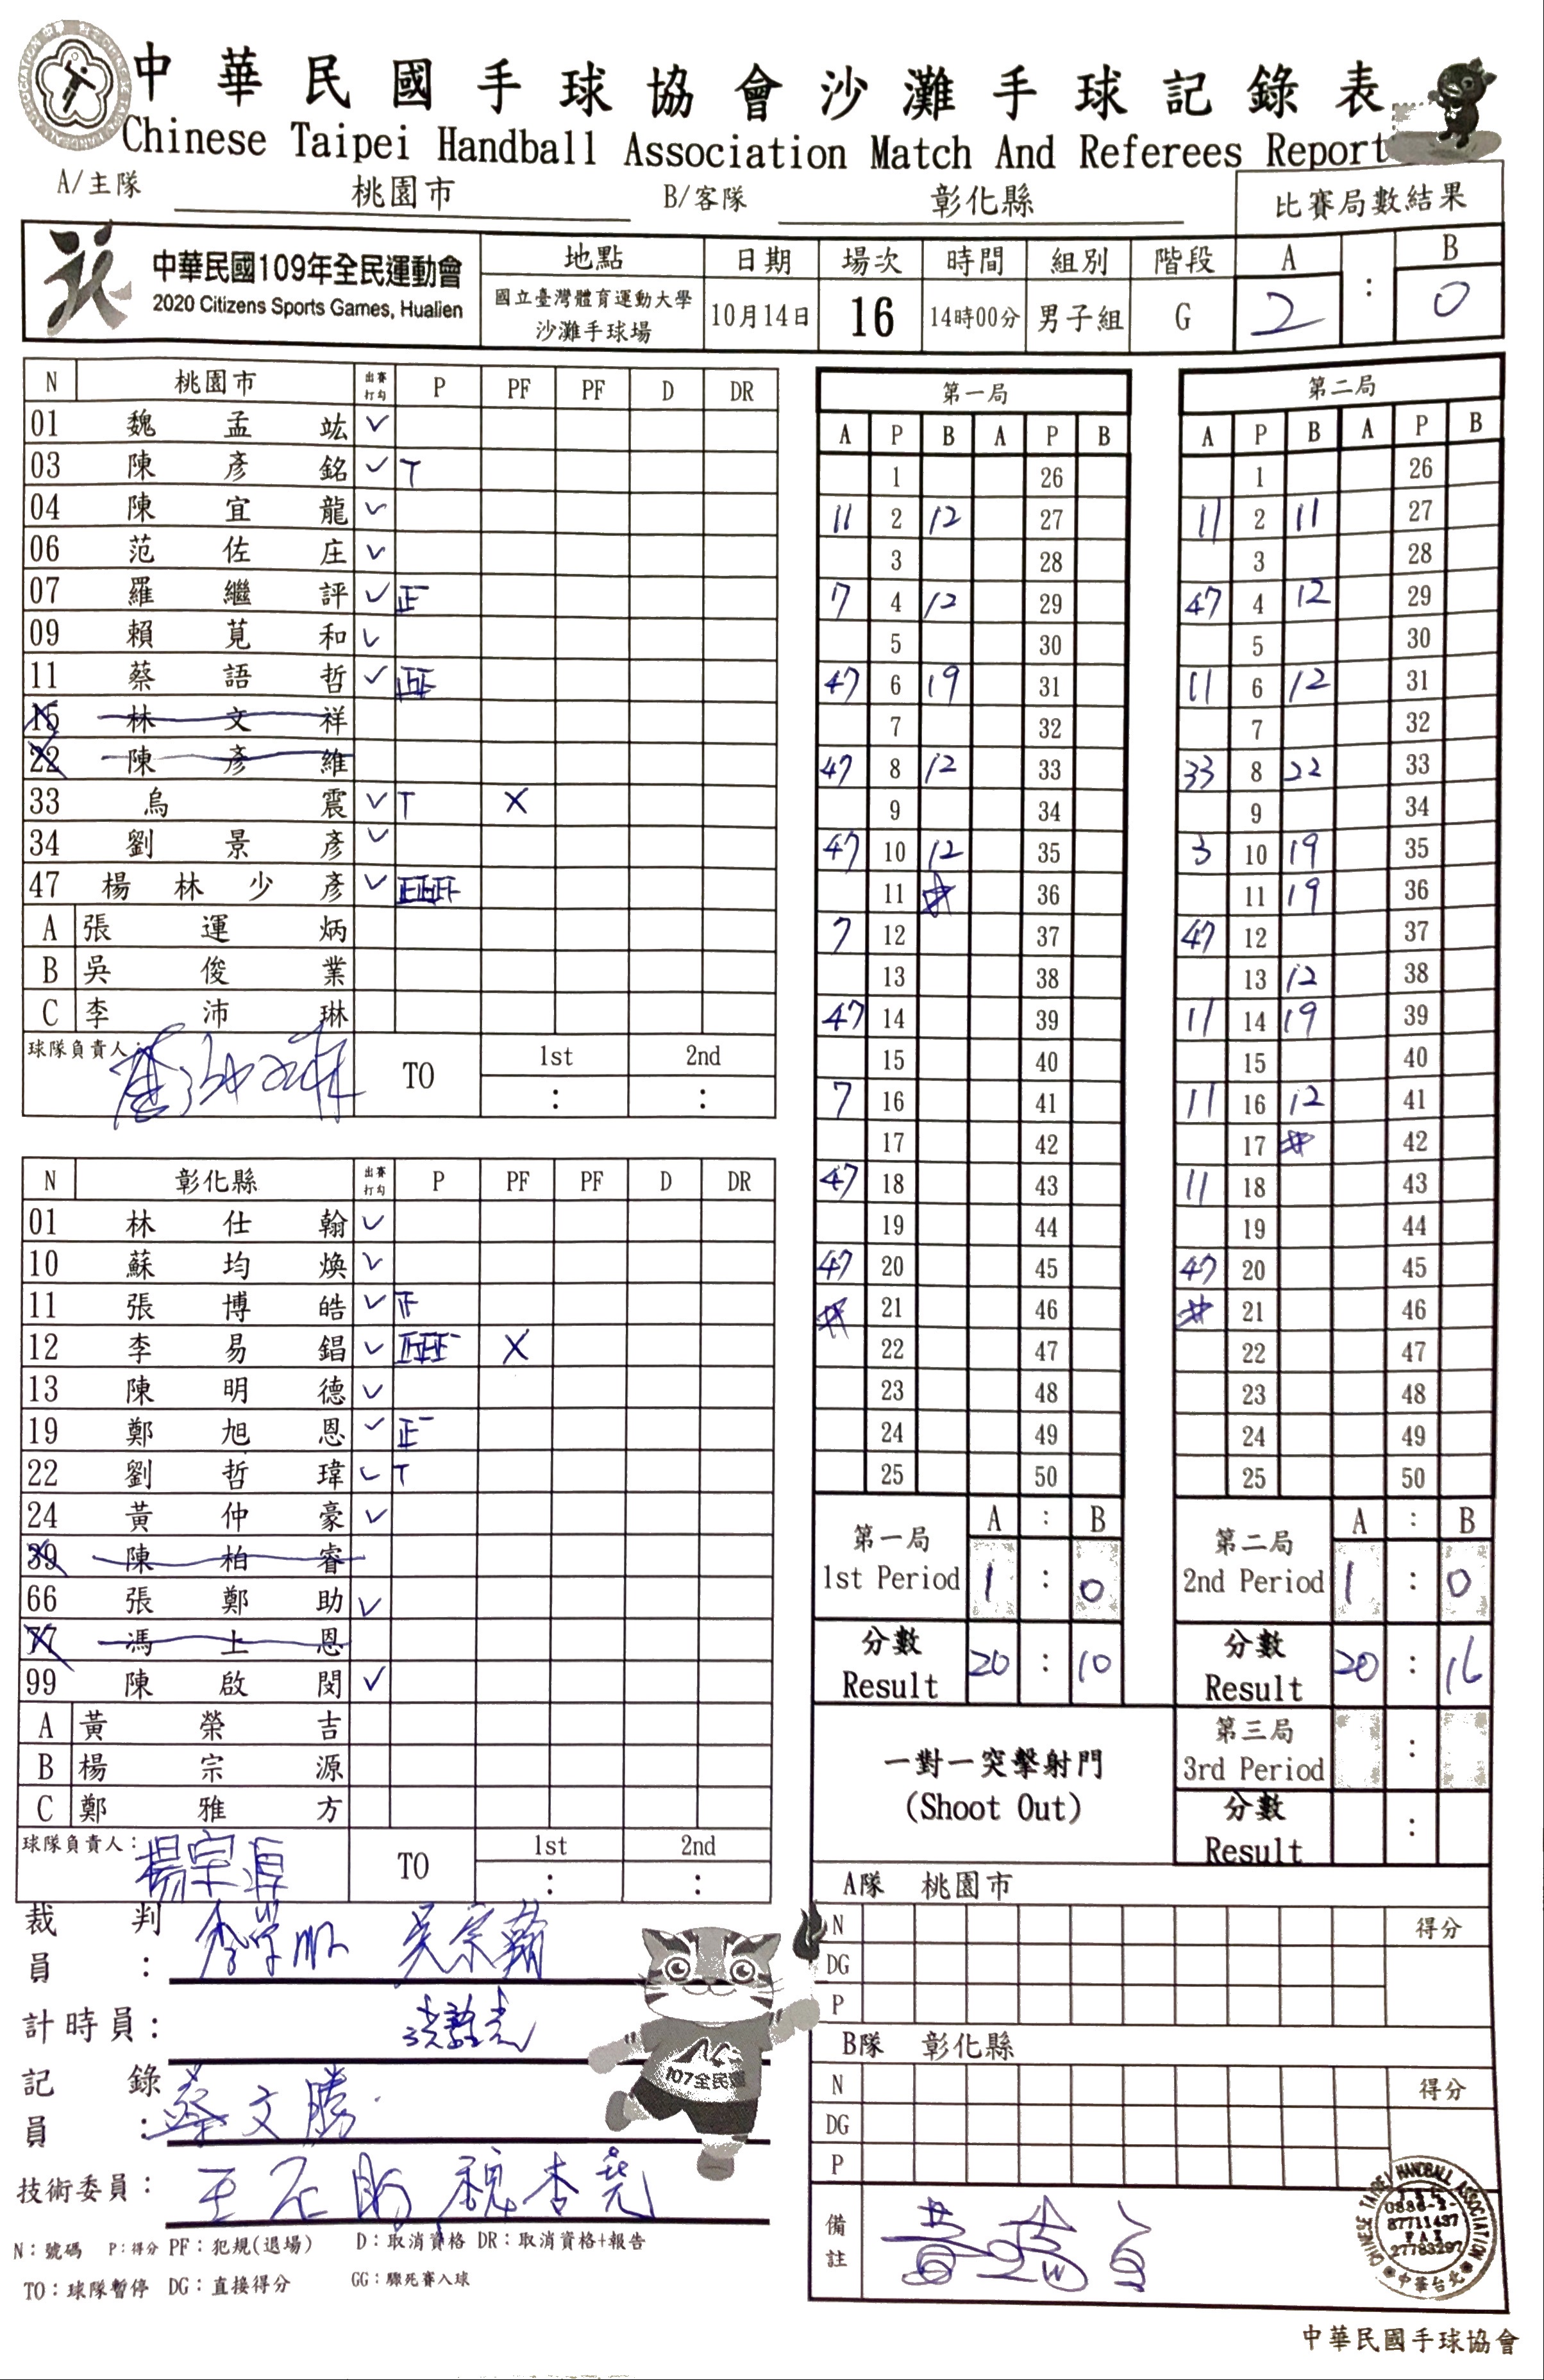 中華民國手球協會沙灘手球記錄表
Chinese Taipei Handball Association Match And Referees Report
A/主隊 桃園市 B/客隊 彰化縣 比賽局數結果
中華民國109年全民運動會
2020 Citizens Sports Games, Hualien
地點 日期 場次 時間 組別 階段 A : B
國立臺灣體育運動大學
沙灘手球場
10月14日 16 14時00分 男子組 G 2 0
N 桃園市 出賽打勾 P PF PF D DR
01 魏孟竑 ✓
03 陳彥銘 ✓ T
04 陳宜龍 ✓
06 范佐庄 ✓
07 羅繼評 ✓ 正
09 賴莧和 ✓
11 蔡語哲 ✓
15 林文祥
22 陳彥維
33 烏震 ✓ T X
34 劉景彥 ✓
47 楊林少彥 ✓
A 張運炳
B 吳俊業
C 李沛琳
球隊負責人:
TO 1st 2nd
: :
N 彰化縣 出賽打勾 P PF PF D DR
01 林仕翰 ✓
10 蘇均煥 ✓
11 張博皓 ✓
12 李易錩 ✓ X
13 陳明德 ✓
19 鄭旭恩 ✓ 正一
22 劉哲瑋 ✓ T
24 黃仲豪 ✓
39 陳柏睿
66 張鄭助 ✓
77 馮上恩
99 陳啟閔 ✓
A 黃榮吉
B 楊宗源
C 鄭雅方
球隊負責人:
TO 1st 2nd
: :
裁判員:
吳宗翰
計時員:
記錄員: 蔡文勝
技術委員:
N：號碼 P：得分 PF：犯規(退場) D：取消資格 DR：取消資格+報告
TO：球隊暫停 DG：直接得分 GG：驟死賽入球
第一局
A P B A P B
1 26
11 2 12 27
3 28
7 4 12 29
5 30
47 6 19 31
7 32
47 8 12 33
9 34
47 10 12 35
11 36
7 12 37
13 38
47 14 39
15 40
7 16 41
17 42
47 18 43
19 44
47 20 45
21 46
22 47
23 48
24 49
25 50
第一局
1st Period
A : B
1 : 0
分數
Result
20 : 10
第二局
A P B A P B
1 26
11 2 11 27
3 28
47 4 12 29
5 30
11 6 12 31
7 32
33 8 22 33
9 34
3 10 19 35
11 19 36
47 12 37
13 12 38
11 14 19 39
15 40
11 16 12 41
17 42
11 18 43
19 44
47 20 45
21 46
22 47
23 48
24 49
25 50
第二局
2nd Period
A : B
1 : 0
分數
Result
20 : 16
一對一突擊射門
(Shoot Out)
第三局
3rd Period
:
分數
Result
:
A隊 桃園市
N 得分
DG
P
B隊 彰化縣
N 得分
DG
P
備註
107全民運
CHINESE TAIPEI HANDBALL ASSOCIATION
87711437
FAX
27783297
中華台北
中華民國手球協會